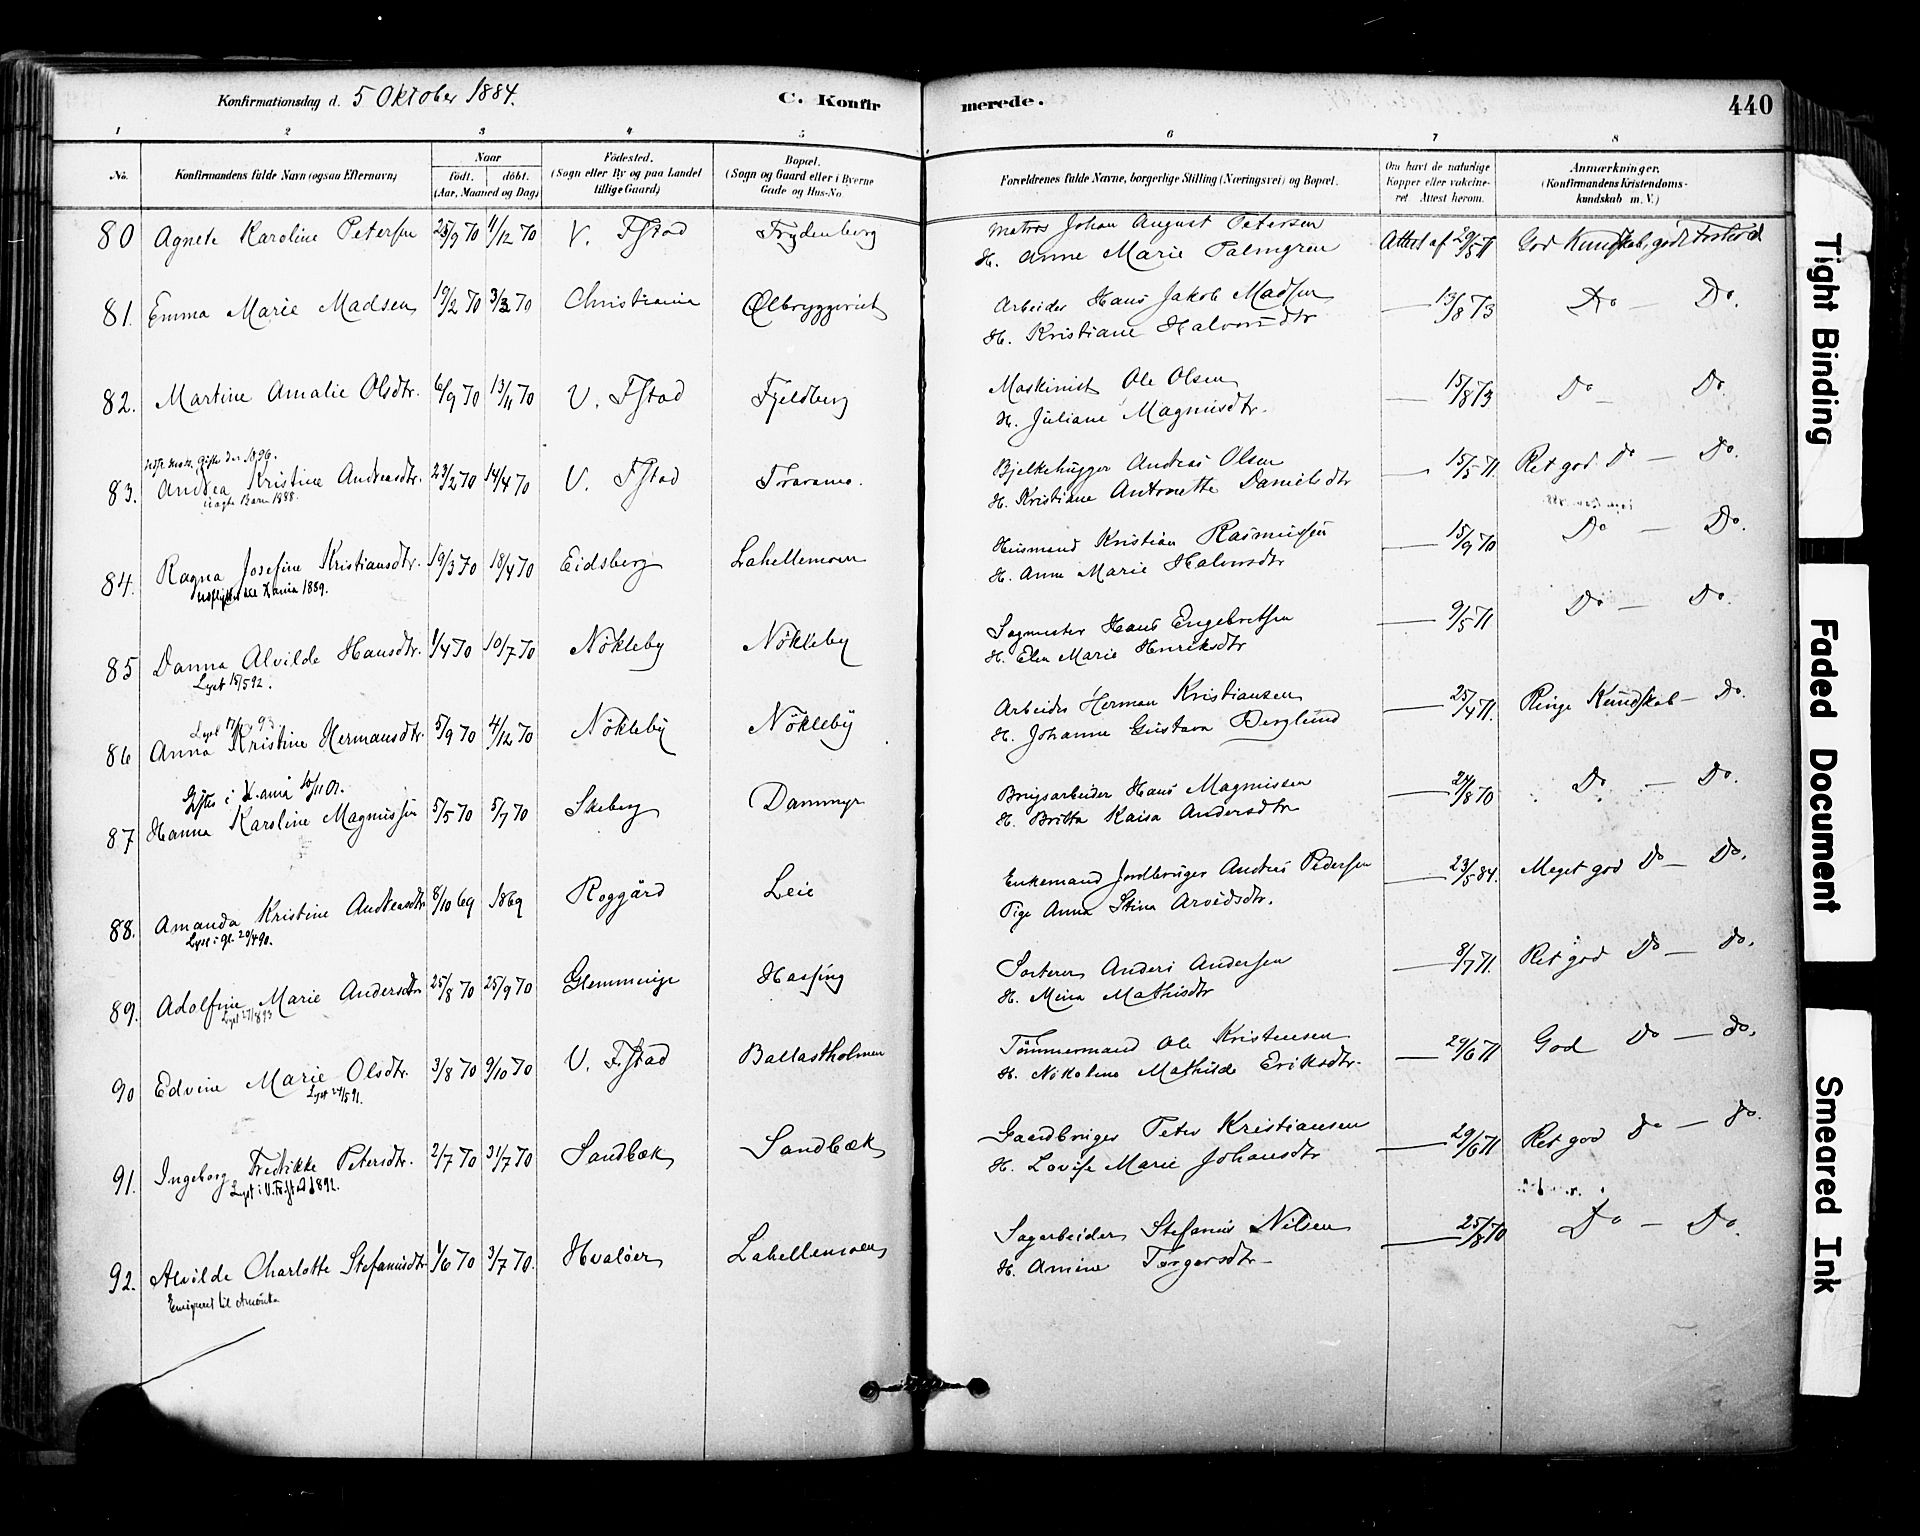 Konfirmationsdag d. 5 Oktober 1884.
C. Konfirmerede.
440
1 2 3 4 5 6 7 8
No.
Konfirmandens fulde Navn (ogsaa Efternavn)
Naar
födt. döbt.
(Aar, Maaned og Dag)
Födested.
(Sogn eller By og paa Landet
tillige Gaard)
Bopæl.
(Sogn og Gaard eller i Byerne
Gade og Hus-No.
Forældrenes fulde Navne, borgerlige Stilling (Næringsvei) og Bopæl.
Om havt de naturlige
Kopper eller vakcine-
ret. Attest herom.
Anmærkninger.
(Konfirmandens Kristendoms-
kundskab m. V.)
80 Agnete Karoline Petersen 25/9 70 11/12 70 V. Fstad Frydenberg Matros Johan August Petersen Attest af 29/5 71 God Kundskab, godt Forhold
H. Anne Marie Palmgren
81. Emma Marie Madsen 19/2 70 3/3 70 Christiania Ølbryggeriet Arbeider Hans Jakob Madsen — 13/8 73 Do — Do.
H. Kristiane Halvorsdtr
82. Martine Amalie Olsdtr. 6/9 70 13/11 70 V. Fstad Fjeldberg Maskinist Ole Olsen — 15/8 73 Do — Do.
H. Juliane Magnusdtr.
83. Andrea Kristine Andreasdtr. 23/2 70 14/4 70 V. Fstad Traramo. Bjelkehugger Andreas Olsen — 15/5 71. Ret god Do — Do.
Barn 1888.
H. Kristiane Antonette Danielsdtr
84. Ragna Josefine Kristiansdtr. 19/3 70 18/4 70 Eidsberg Lahellemoen Husmand Kristian Rasmussen — 15/9 70 Do — Do.
Udflyttet til Xania 1889.
H. Anne Marie Halvorsdtr
85 Danna Alvilde Hansdtr. 1/4 70 10/7 70 Nökleby Nökleby Sagmester Hans Engebretsen — 9/5 71 Do — Do.
Lyst 15/5 92.
H. Elen Marie Henriksdtr
86 Anna Kristine Hermansdtr 5/9 70 4/12 70 Nökleby Nökleby Arbeider Herman Kristiansen — 25/4 71. Ringe Kundskab — Do.
H. Johanne Gustava Berglund
Giftes i Xania 10/11 01.
87 Hanna Karoline Magnussen 5/5 70 5/7 70 Skeberg Dammyr Brugsarbeider Hans Magnussen — 24/8 70 Do — Do.
H. Britta Kaisa Andersdtr
88. Amanda Kristine Andreasdtr 8/10 69 1869 Roggård Leie Enkemand Jordbruger Andreas Pedersen — 23/5 84. Meget god Do — Do.
Lyst i Gl. 20/4 90.
Pige Anna Stina Arvidsdtr.
89. Adolfine Marie Andersdtr 25/8 70 25/9 70 Glemminge Hassing Sorterer Anders Andersen — 8/7 71. Ret god Do — Do.
Lyst 27/8 93
H. Mina Mathisdtr
90 Edvine Marie Olsdtr. 3/8 70 9/10 70 V. Fstad Ballastholmen Tömmermand Ole Kristensen — 29/6 71 God Do — do.
Lyst 24/5 91.
H. Nikoline Mathilde Eriksdtr.
91. Ingeborg Fredrikke Petersdtr. 2/7 70 31/7 70 Sandbæk Sandbæk Gaardbruger Peter Kristiansen — 29/6 71 Ret god Do — do.
Lyst i V. Fr.stad 1892.
H. Lovise Marie Johansdtr
92. Alvilde Charlotte Stefanusdtr 1/6 70 3/7 70. Hvaløer Lahellemoen Sagarbeider Stefanus Nilsen — 25/8 70 Do — Do.
Emigreret til Amerika
H. Amine Torgersdtr
Tight Binding
Faded Document
Smeared Ink